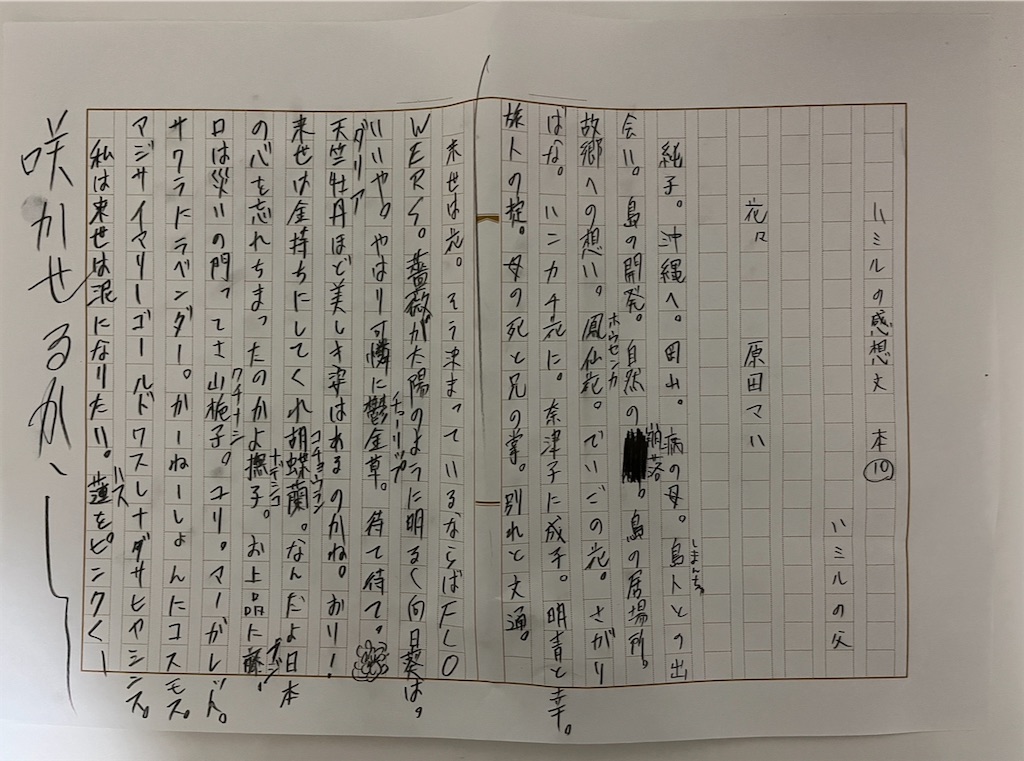 ハミルの感想文 本⑩
ハミルの父
花々 原田マハ
純子。沖縄へ。田山。病の母。島人との出
しまんちゅ
会い。島の開発。自然の崩落。島の居場所。
故郷への想い。鳳仙花。でいごの花。さがり
ホウセンカ
ばな。ハンカチ花に。奈津子に成子。明青と幸。
旅人の掟。母の死と兄の掌。別れと文通。
来世は花。そう決まっているならばFLO
WERS。薔薇が太陽のように明るく向日葵は。
いいや。やはり可憐に鬱金草。待て待て。
チューリップ
ダリア
天竺牡丹ほど美しき姿はあるのかね。おい!
来世は金持ちにしてくれ胡蝶蘭。なんだよ日本
コチョウラン
の心を忘れちまったのかよ撫子。お上品に藤。
ナデシコ
フジ
口は災いの門ってさ山梔子。ユリ。マーガレット。
クチナーシ
サクラにラベンダー。かーねーしょんにコスモス。
アジサイマリーゴールドワスレナグサヒヤシンス。
私は来世は泥になりたい。蓮をピンクくー
ハス
咲かせるが、